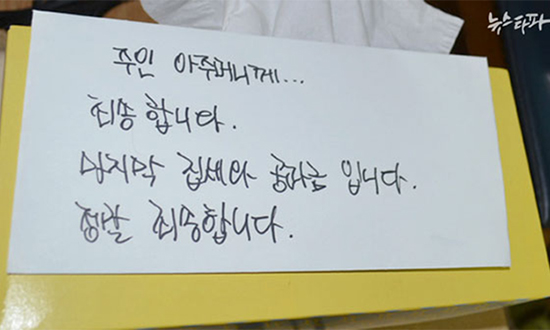 뉴스타파
주인 아주머니께...
죄송합니다.
마지막 집세와 공과금 입니다.
정말 죄송합니다.